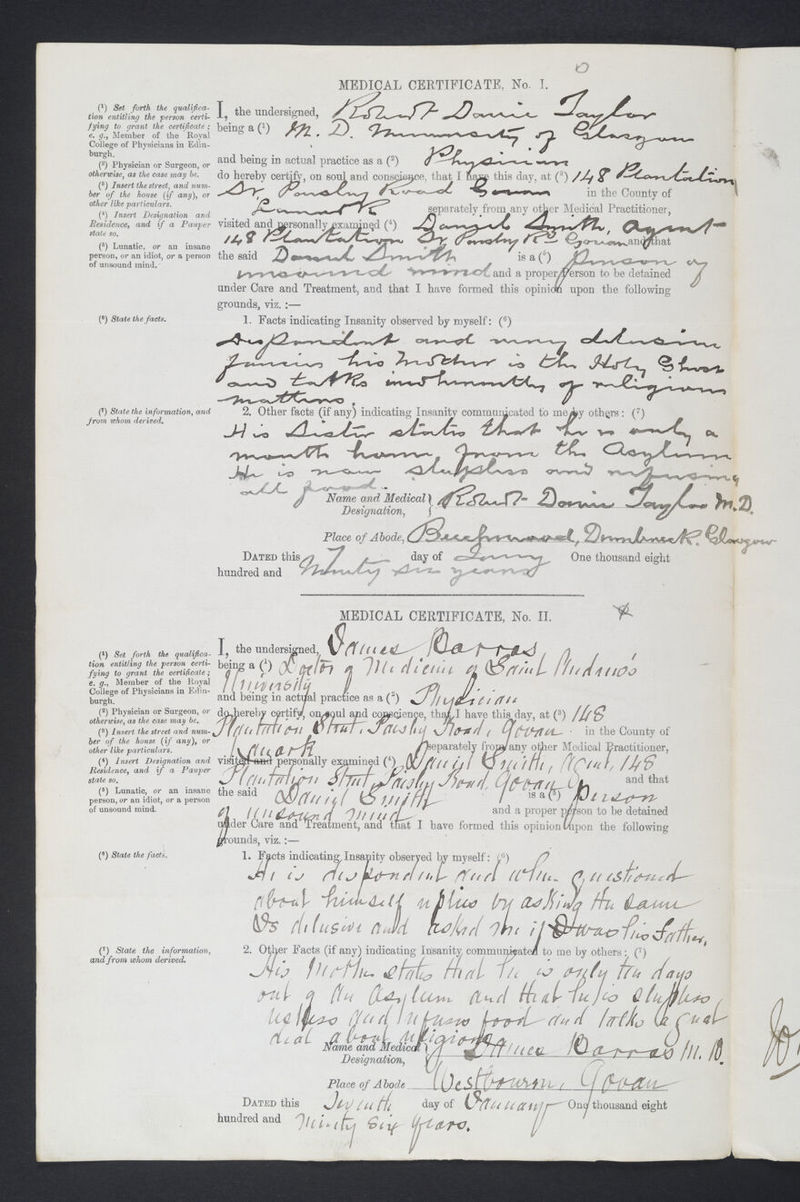 MEDICAL CERTIFICATE, No. I.
(¹) Set forth the qualifica-
tion entitling the person certi-
fying to grant the certificate;
e. g., Member of the Royal
College of Physicians in Edin-
burgh.
(²) Physician or Surgeon, or
otherwise, as the case may be.
(³) Insert the street, and num-
ber of the house (if any), or
other like particulars.
(⁴) Insert Designation and
Residence, and if a Pauper
state so.
(⁵) Lunatic, or an insane
person, or an idiot, or a person
of unsound mind.
I, the undersigned, Robert Davie Taylor
being a (¹) M. D. University of Glasgow
and being in actual practice as a (²) Physician
do hereby certify, on soul and conscience, that I have this day, at (³) 148 Plantation
St. Paisley Road Govan in the County of
Lanark separately from any other Medical Practitioner,
visited and personally examined (⁴) Daniel Smith, Agent
148 Plantation St Paisley Rd Govan and that
the said Daniel Smith is a (⁵) Person of
unsound mind and a proper Person to be detained
under Care and Treatment, and that I have formed this opinion upon the following
grounds, viz. :—
(⁶) State the facts.
1. Facts indicating Insanity observed by myself: (⁶)
Despondent and many delusions
fancies his Mother is the Holy Ghost
and talks incoherently of religious
matters.
(⁷) State the information, and
from whom derived.
2. Other facts (if any) indicating Insanity communicated to me by others: (⁷)
His Sister states that he is only a
month home from the Asylum
He is now sleepless and refusing
all food.
Name and Medical
Designation,
Robert Davie Taylor M.D.
Place of Abode, Glasgow
DATED this 7 day of One thousand eight
hundred and Ninety Six years
MEDICAL CERTIFICATE, No. II.
(¹) Set forth the qualifica-
tion entitling the person certi-
fying to grant the certificate;
e. g., Member of the Royal
College of Physicians in Edin-
burgh.
(²) Physician or Surgeon, or
otherwise, as the case may be.
(³) Insert the street and num-
ber of the house (if any), or
other like particulars.
(⁴) Insert Designation and
Residence, and if a Pauper
state so.
(⁵) Lunatic, or an insane
person, or an idiot, or a person
of unsound mind.
I, the undersigned, James Barras
being a (¹) Doctor of Medicine of Saint Andrew's
University
and being in actual practice as a (²) Physician
do hereby certify, on soul and conscience, that I have this day, at (³) 148
Plantation Street, Paisley Road, Govan in the County of
Lanark separately from any other Medical Practitioner,
visited and personally examined (⁴) Daniel Smith, Agent, 148
Plantation Street Paisley Road, Govan and that
the said Daniel Smith is a (⁵) Person
of Unsound mind and a proper person to be detained
under Care and Treatment, and that I have formed this opinion upon the following
grounds, viz. :—
(⁶) State the facts.
1. Facts indicating Insanity observed by myself: (⁶)
He is despondent and when questioned
about himself replies by asking the same
Is delusive and asked me if I was his Father.
(⁷) State the information,
and from whom derived.
2. Other Facts (if any) indicating Insanity communicated to me by others: (⁷)
His Mother states that he is only ten days
out of the Asylum and that he is sleepless,
restless and refuses food and talks a great
deal about religion.
Name and Medical
Designation,
James Barras M. D.
Place of Abode Westbourne, Govan
DATED this Seventh day of January One thousand eight
hundred and Ninety Six years.